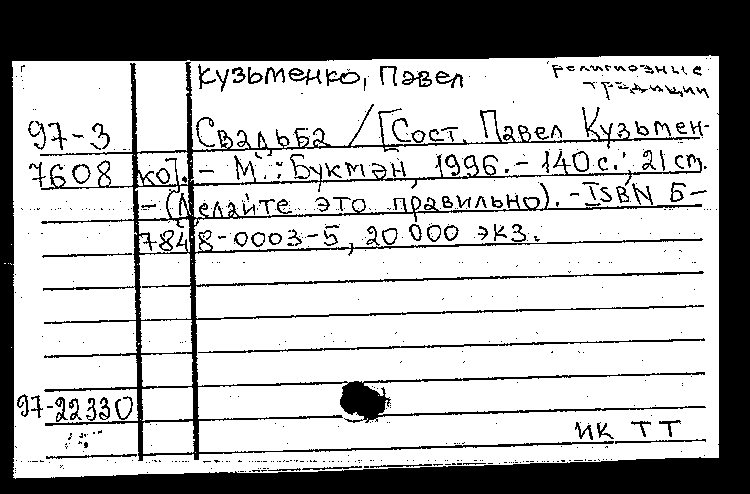 Кузьменко, Павел
религиозные
традиции
97-3
Свадьба / [Сост. Павел Кузьмен-
7608 ко]. - М.: Букмэн, 1996. - 140 с.; 21 ст.
- (Делайте это правильно). - ISBN 5-
7848-0003-5, 20 000 экз.
97-22330
ИК ТТ